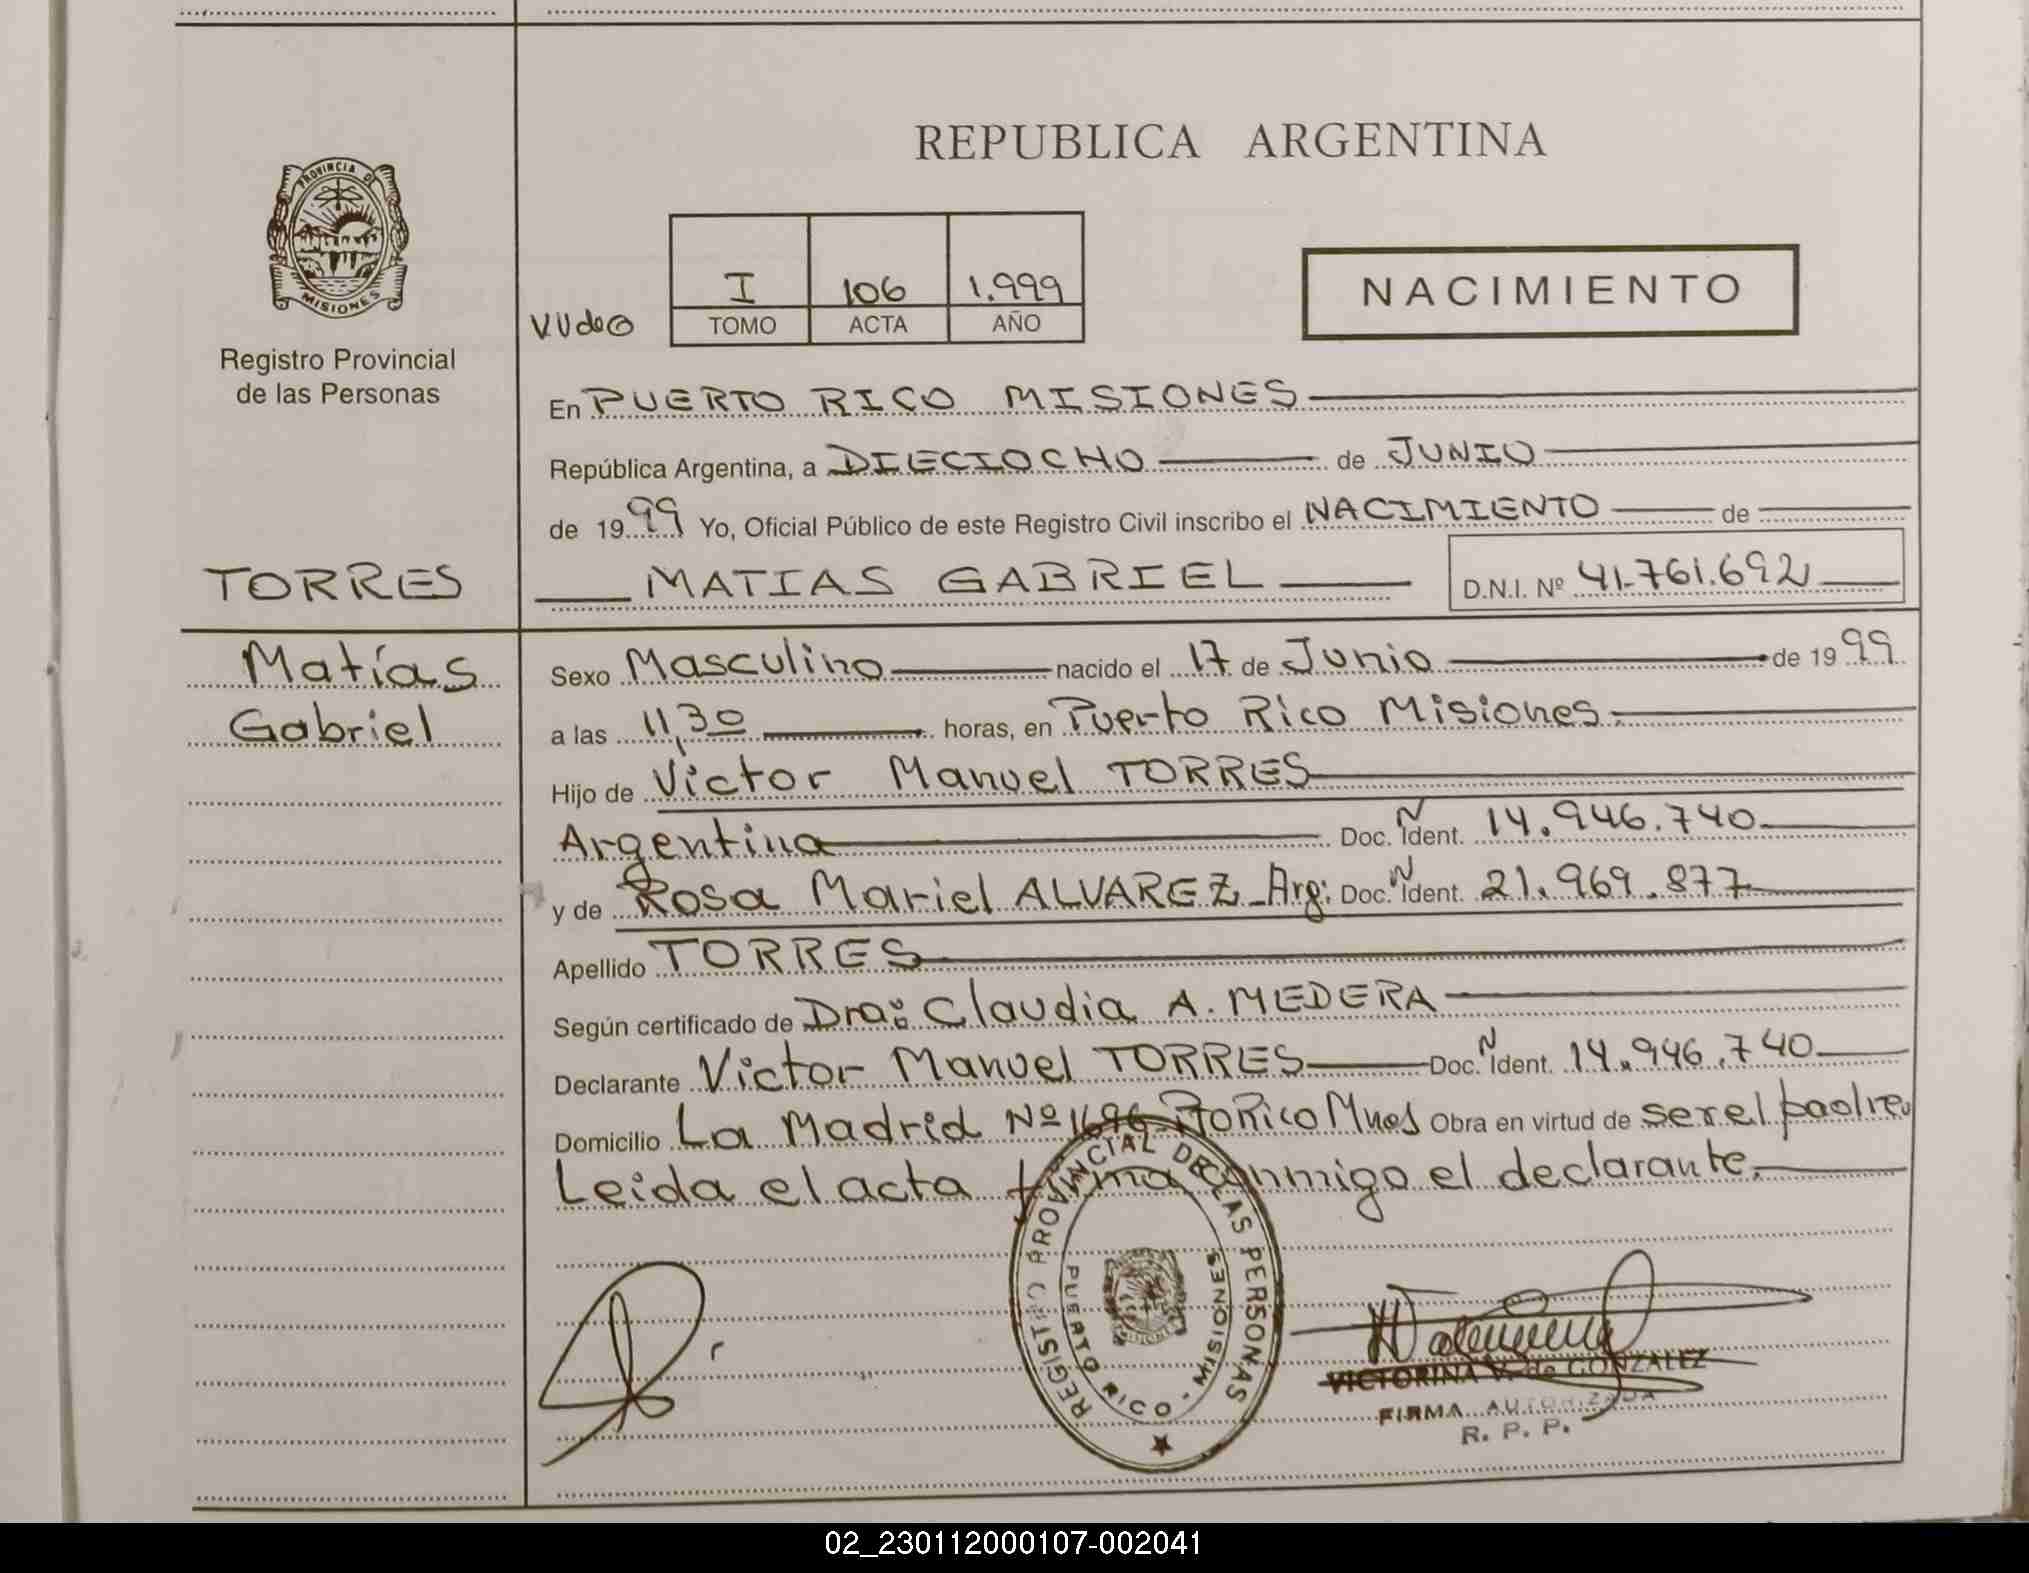 REPUBLICA ARGENTINA
PROVINCIA DE
MISIONES
Registro Provincial
de las Personas
I 106 1.999
TOMO ACTA AÑO
NACIMIENTO
En PUERTO RICO MISIONES
República Argentina, a DIECIOCHO de JUNIO
de 1999 Yo, Oficial Público de este Registro Civil inscribo el NACIMIENTO de
TORRES
MATIAS GABRIEL D.N.I. Nº 41.761.692
Matías
Gabriel
Sexo Masculino nacido el 17 de Junio de 1999
a las 11,30 horas, en Puerto Rico Misiones.
Hijo de Victor Manuel TORRES
Argentina Doc. N Ident. 14.946.740
y de Rosa Mariel ALVAREZ - Arg: Doc. N Ident. 21.969.877
Apellido TORRES
Según certificado de Dra: Claudia A. MEDERA
Declarante Victor Manuel TORRES Doc. N Ident. 14.946.740
Domicilio La Madrid Nº 1696 Pto Rico Mnes Obra en virtud de ser el padre.
Leida el acta firma conmigo el declarante.
REGISTRO PROVINCIAL DE LAS PERSONAS
PUERTO RICO - MISIONES
VICTORINA V. de GONZALEZ
FIRMA AUTORIZADA
R. P. P.
02_230112000107-002041